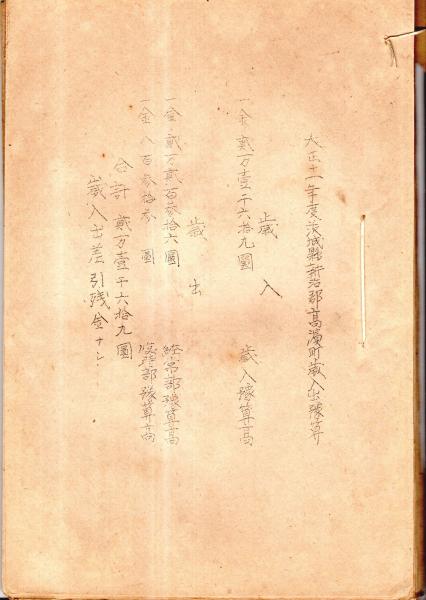 大正十一年度茨城縣新治郡高濱町歳入出豫算
歳入
一金貳万壹千六拾九圓 歳入豫算高
歳出
一金貳万貳百参拾六圓 経常部豫算高
一金八百参拾参圓 臨時部豫算高
合計貳万壹千六拾九圓
歳入出差引残金ナシ